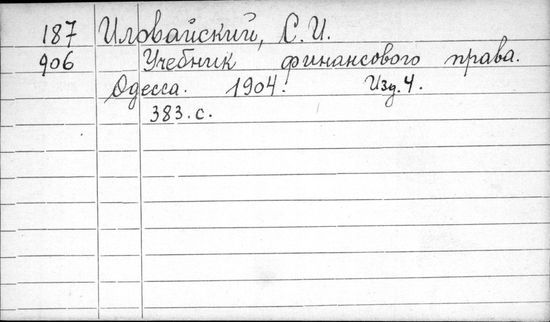 187 Иловайский, С.И.
906 Учебник финансового права.
Одесса. 1904. Изд. 4.
383.с.